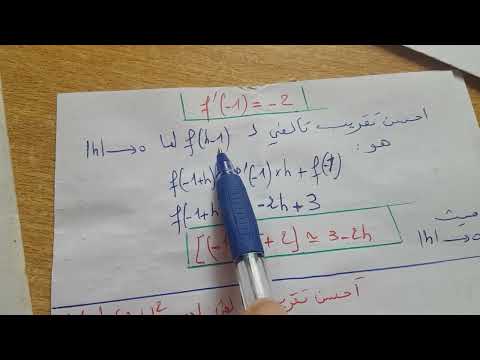 f'(-1) = -2
احسن تقريب تآلفي لـ f(h-1) لما |h|→0
هو:
f(-1+h) '(-1)×h + f(-1)
f(-1+h -2h+3
[(-1 +2] ≃ 3-2h
حيث |h|→0
أحسن تقريب